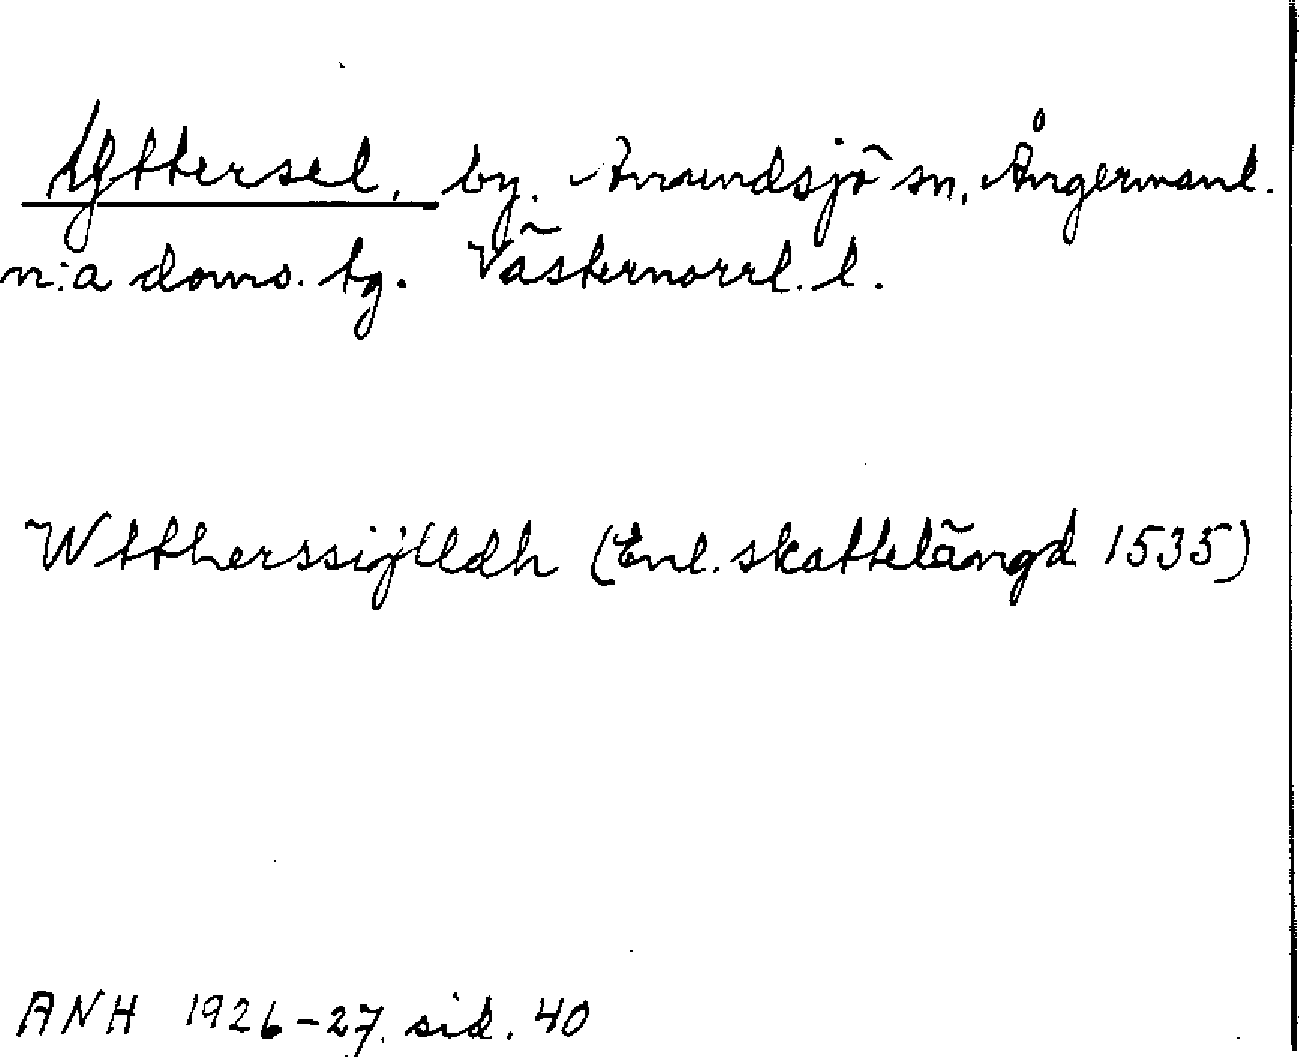 Yttersel, by. Anundsjö sn, Ångermanl.
n:a doms. tg. Västernorrl. l.
Wttherssiylldh (Enl. skattelängd 1535)
ANH 1926-27, sid. 40